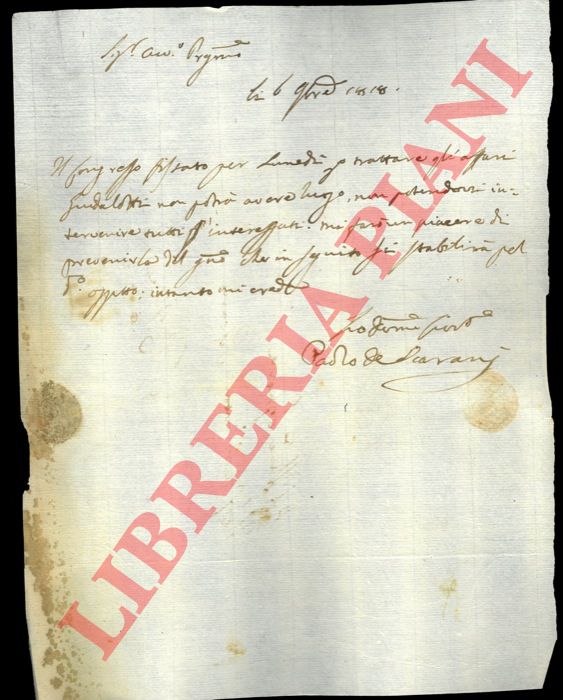 Sig.r Avv.o Pregmo
li 6 9bre 1818.
Il Congresso fissato per Lunedì p trattare gli affari
Guidalotti non potrà avere luogo, non potendovi in-
tervenire tutti gl' interessati: mi farò un piacere di
prevenirla del gno che in seguito si stabilirà pel
so oggetto: intanto mi creda
Suo Devmo Servre
Paolo de Scarani
LIBRERIA PIANI